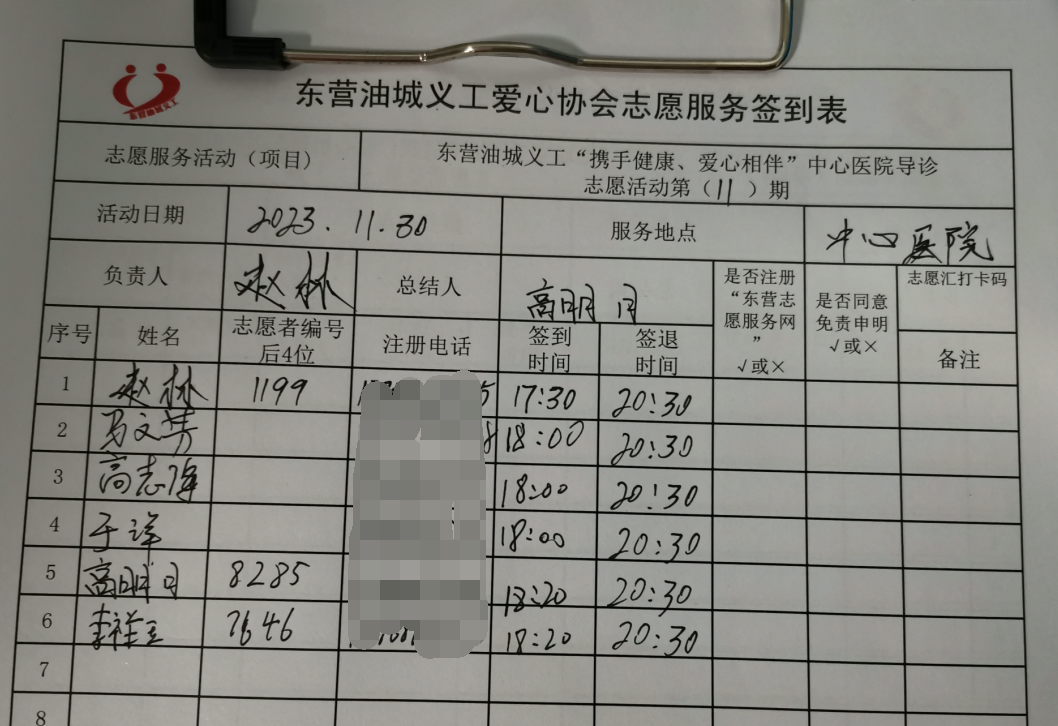 东营油城义工爱心协会志愿服务签到表
志愿服务活动（项目） 东营油城义工“携手健康、爱心相伴”中心医院导诊
志愿活动第（11）期
活动日期 2023.11.30 服务地点 中心医院
负责人 赵林 总结人 高明月 是否注册“东营志愿服务网” √或× 是否同意免责申明 √或× 志愿汇打卡码
序号 姓名 志愿者编号后4位 注册电话 签到时间 签退时间 备注
1 赵林 1199 17:30 20:30
2 马文 18:00 20:30
3 高志 18:00 20:30
4 于洋 18:00 20:30
5 高明月 8285 18:20 20:30
6 李祥 7646 18:20 20:30
7
8